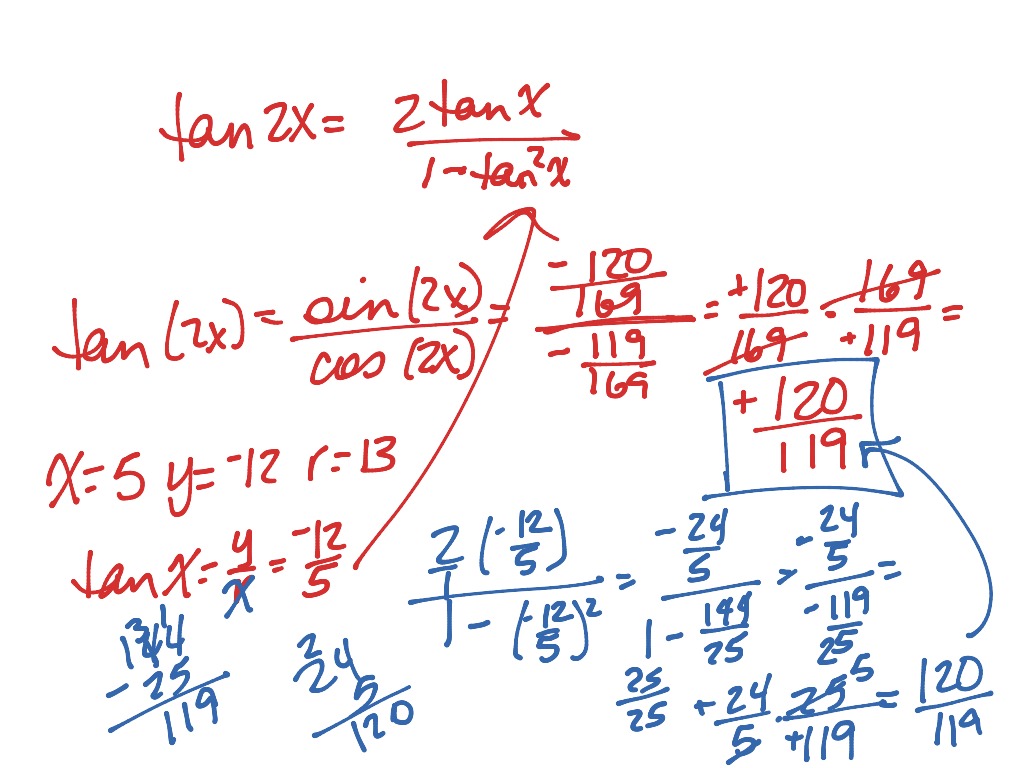 tan 2x = 2 tan x / 1 - tan²x
tan (2x) = sin (2x) / cos (2x) = (-120/169) / (-119/169) = +120/169 · 169/+119 =
+120/119
x = 5 y = -12 r = 13
tan x = y/x = -12/5
2/1 (-12/5) / 1 - (-12/5)² = -24/5 / 1 - 144/25 = -24/5 / -119/25 =
25/25
+24/5 · 25 5/+119 = 120/119
144
- 25
119
2
24
5
120